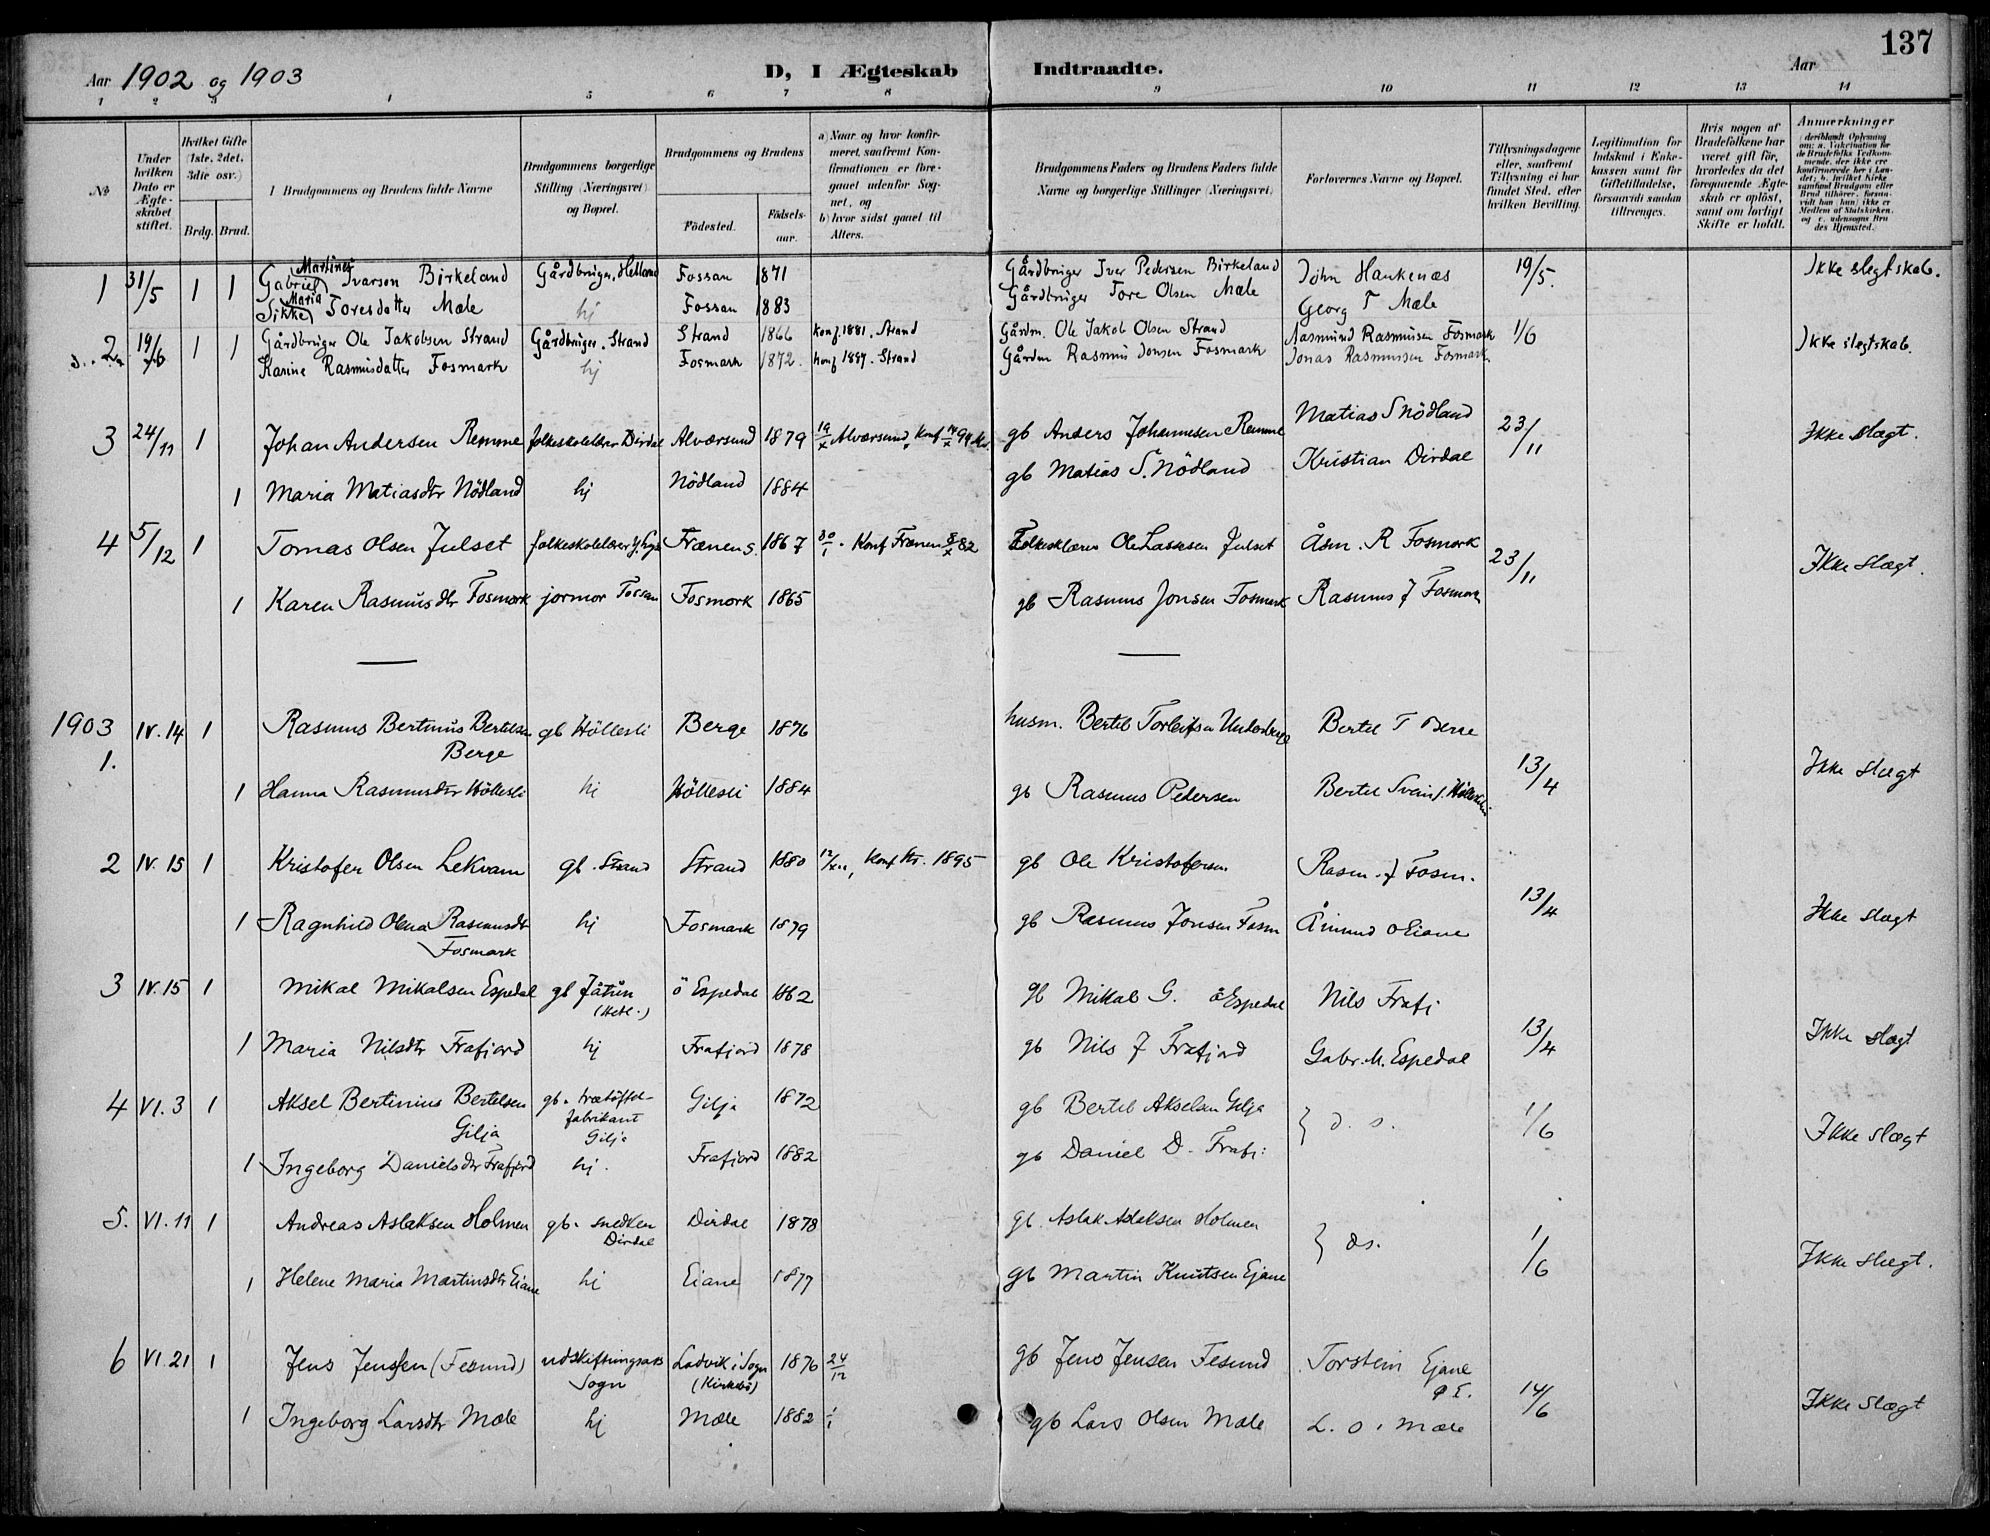 137
Aar 1902 og 1903 D, I Ægteskab Indtraadte. Aar
1 2 3 4 5 6 7 8 9 10 11 12 13 14
No
Under hvilken Dato er Ægteskabet stiftet.
Hvilket Gifte (1ste, 2det, 3die osv.)
Brdg. Brud.
Brudgommens og Brudens fulde Navne
Brudgommens borgerlige Stilling (Næringsvei) og Bopæl.
Brudgommens og Brudens
Fødested. Fødselsaar.
a) Naar og hvor konfirmeret, saafremt Konfirmationen er foregaaet udenfor Sognet, og
b) hvor sidst gaaet til Alters.
Brudgommens Faders og Brudens Faders fulde Navne og borgerlige Stillinger (Næringsvei).
Forlovernes Navne og Bopæl.
Tillysningsdagene eller, saafremt Tillysning ei har fundet Sted, efter hvilken Bevilling.
Legitimation for Indskud i Enkekassen samt for Giftetilladelse, forsaavidt saadan tiltrænges.
Hvis nogen af Brudefolkene har været gift før, hvorledes da det foregaaende Ægteskab er opløst, samt om lovligt Skifte er holdt.
Anmærkninger (deriblandt Oplysning om: a. Vakcination for de Brudefolks Vedkommende, der ikke ere konfirmerede her i Landet; b. hvilket Kirkesamfund Brudgom eller Brud tilhører, forsaavidt han (hun) ikke er Medlem af Statskirken, og c. udensogns Brudes Hjemsted.
1 31/5 1 1 Gabriel Martines Ivarson Birkeland Gårdbruger, Helland Fossan 1871 Gårdbruger Iver Pedersen Birkeland John Haukenæs 19/5. Ikke slegtskab.
Sikke Maria Toresdatter Mæle hj Fossan 1883 Gårdbruger Tore Olsen Mæle Georg T Mæle
2 19/6 1 1 Gårdbruger Ole Jakobsen Strand Gårdbruger. Strand Strand 1866 konf. 1881. Strand Gårdm. Ole Jakob Olsen Strand Aasmund Rasmusen Fosmark 1/6 Ikke slegtskab.
Karine Rasmusdatter Fosmark hj Fosmark 1872. konf 1887. Strand Gårdm Rasmus Jonsen Fosmark Jonas Rasmussen Fosmark
3 24/11 1 Johan Andersen Remme folkeskolelærer Dirdal Alværsund 1879 19/x Alværsund, konf gb Anders Johannesen Remme Matias S Nödland 23/11 Ikke slægt.
1 Maria Matiasdtr Nödland hj Nödland 1884 gb Matias S. Nödland Kristian Dirdal
4 5/12 1 Tomas Olsen Julset folkeskolelærer Frænen s. 1867 30/1. Konf Frænen 8/x 82 Folkesklærer Ole Larsen Julset Åsm. R Fosmork 23/11 Ikke slægt.
1 Karen Rasmusdtr Fosmork jormor Fossan Fosmork 1865 gb Rasmus Jonsen Fosmark Rasmus J Fosmork
1903
1. IV. 14 1 Rasmus Bertinus Bertelsen gb Höllesli Berge 1876 husm. Bertel Torleifsen Underberge Bertel T Berge 13/4 Ikke slægt
Berge
1 Hanna Rasmusdtr Höllesli hj Höllesli 1884 gb Rasmus Pedersen Bertel Svein f. Höllesli
2 IV. 15 1 Kristofer Olsen Lekvam gb. Strand Strand 1880 12/xii, Konf Str. 1895 gb Ole Kristofersen Rasm. J Fosm. 13/4 Ikke slægt
1 Ragnhild Olena Rasmusdtr hj Fosmark 1879 gb Rasmus Jonsen Fosm Åmund O Eiane
Fosmark
3 IV. 15 1 Mikal Mikalsen Espedal gb Jåtun ö Espedal 1862 gb Mikal G. ö Espedal Nils Frafj 13/4 Ikke slægt
(Hetl.)
1 Maria Nilsdtr Frafjord hj Frafjord 1878 gb Nils J Frafjord Gabr. M. Espedal
4 VI. 3 1 Aksel Bertinius Bertelsen gb. trætöffel- Gilja 1872 gb Bertel Akselsen Gilja } d. s. 1/6 Ikke slægt
Gilja fabrikant Gilja
1 Ingeborg Danielsdtr Frafjord hj. Frafjord 1882 gb Daniel D. Frafj:
5. VI. 11 1 Andreas Aslaksen Holmen gb. snedker Dirdal 1878 gb. Aslak Aslaksen Holmen } ds. 1/6 Ikke slægt.
Dirdal
1 Helene Maria Martinsdtr Eiane hj Eiane 1877 gb Martin Knutsen Ejane
6 VI. 21 1 Jens Jenssen (Fesund) udskiftningsass Ladvik i Sogn 1876 24/12 gb Jens Jensen Fesund Torstein Ejane 14/6 Ikke slægt
Sogn (Kirkebö)
1 Ingeborg Larsdtr Mæle hj Mæle 1882 1/1 gb Lars Olsen Mæle L. O. Mæle